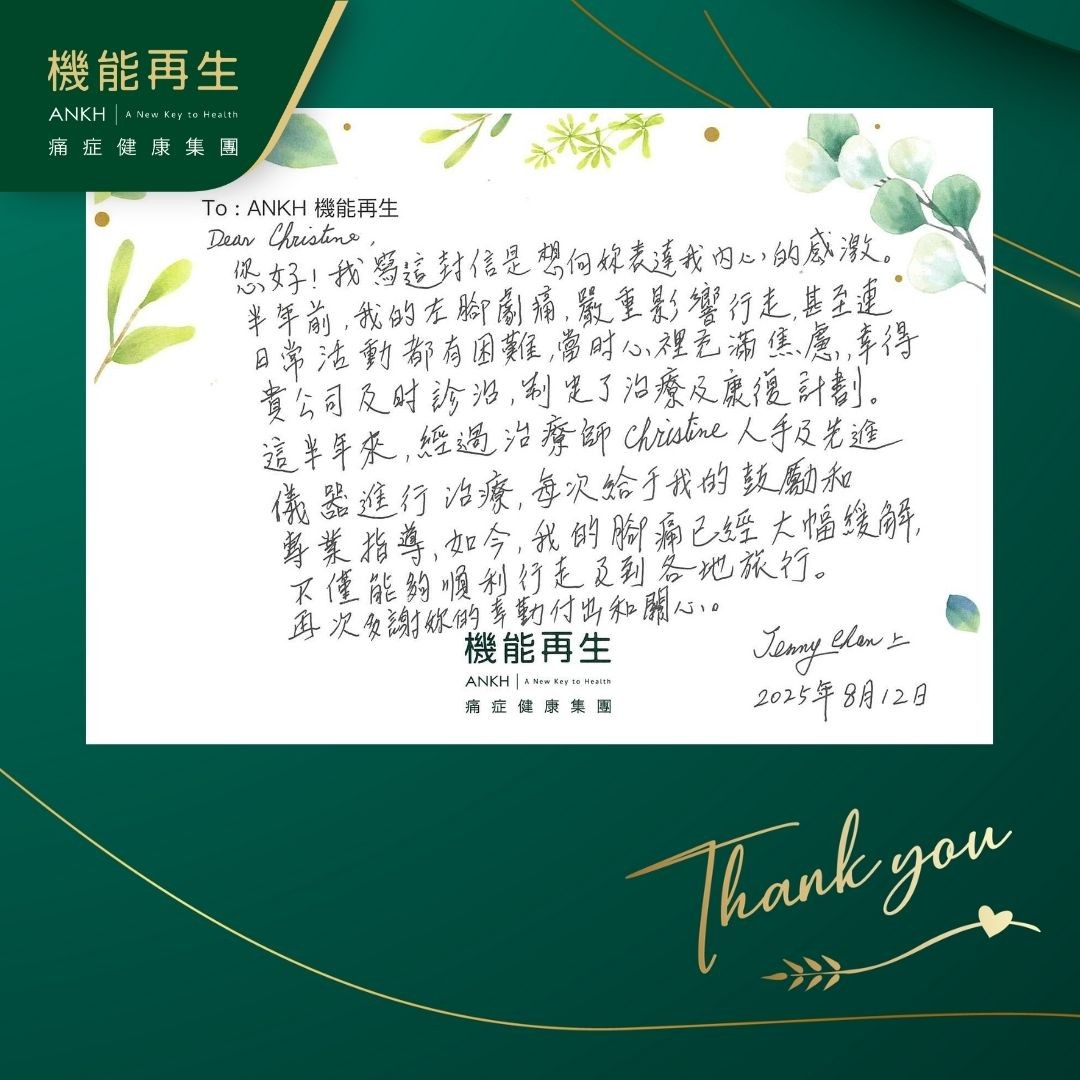 機能再生
ANKH | A New Key to Health
痛症健康集團
To : ANKH 機能再生
Dear Christine,
您好！我寫這封信是想向妳表達我内心的感激。
半年前,我的左腳劇痛,嚴重影響行走,甚至連
日常活動都有困難,當时心裡充滿焦慮,幸得
貴公司及时診治,制定了治療及康復計劃。
這半年來,經過治療師Christine人手及先進
儀器進行治療,每次給于我的鼓勵和
專業指導,如今,我的腳痛已經大幅緩解,
不僅能夠順利行走及到各地旅行。
再次多謝妳的辛勤付出和關心。
機能再生
ANKH | A New Key to Health
痛症健康集團
Jenny Chan 上
2025年8月12日
Thank you